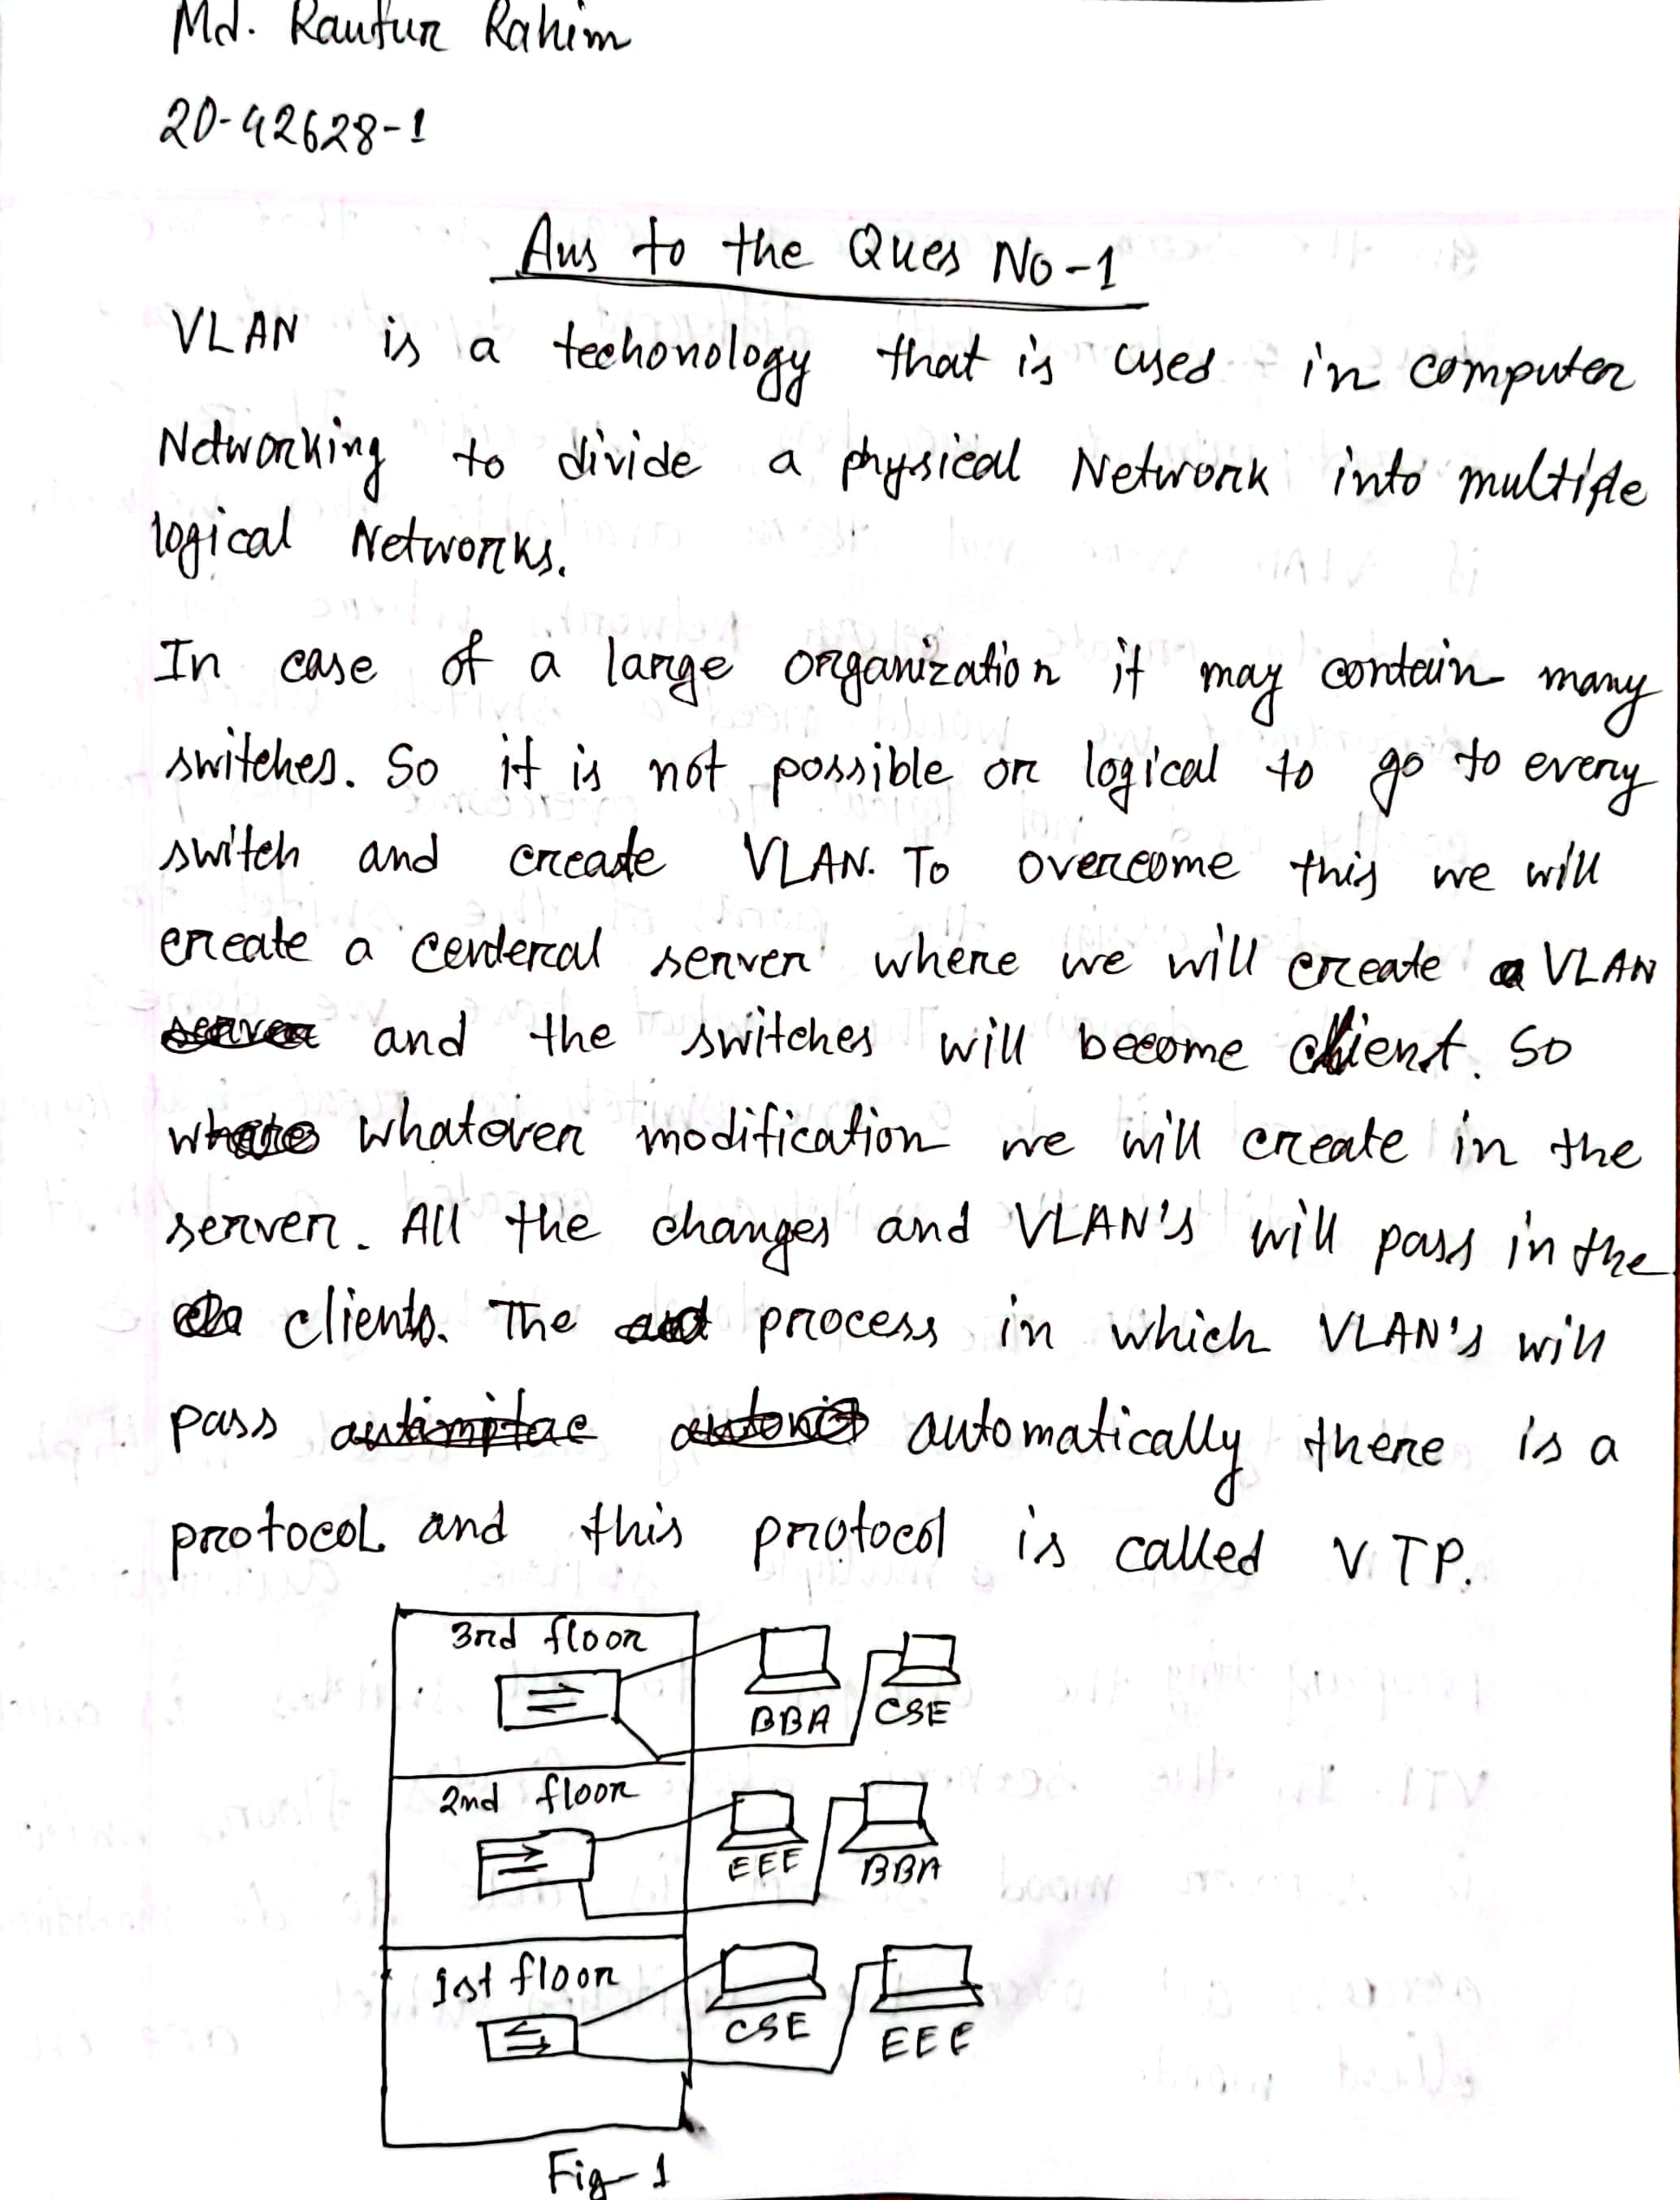 Md. Raufur Rahim
20-42628-1
Ans to the Ques No-1
VLAN is a techonology that is used in computer
Networking to divide a physical Network into multiple
logical Networks.
In case of a large organization it may contain many
switches. So it is not possible or logical to go to every
switch and create VLAN. To overcome this we will
create a centeral server where we will create a VLAN
server and the switches will become client. So
whatever modification we will create in the
server. All the changes and VLAN's will pass in the
clients. The process in which VLAN's will
pass automatically there is a
protocol and this protocol is called VTP.
3rd floor
BBA CSE
2nd floor
EEE BBA
1st floor
CSE EEE
Fig-1